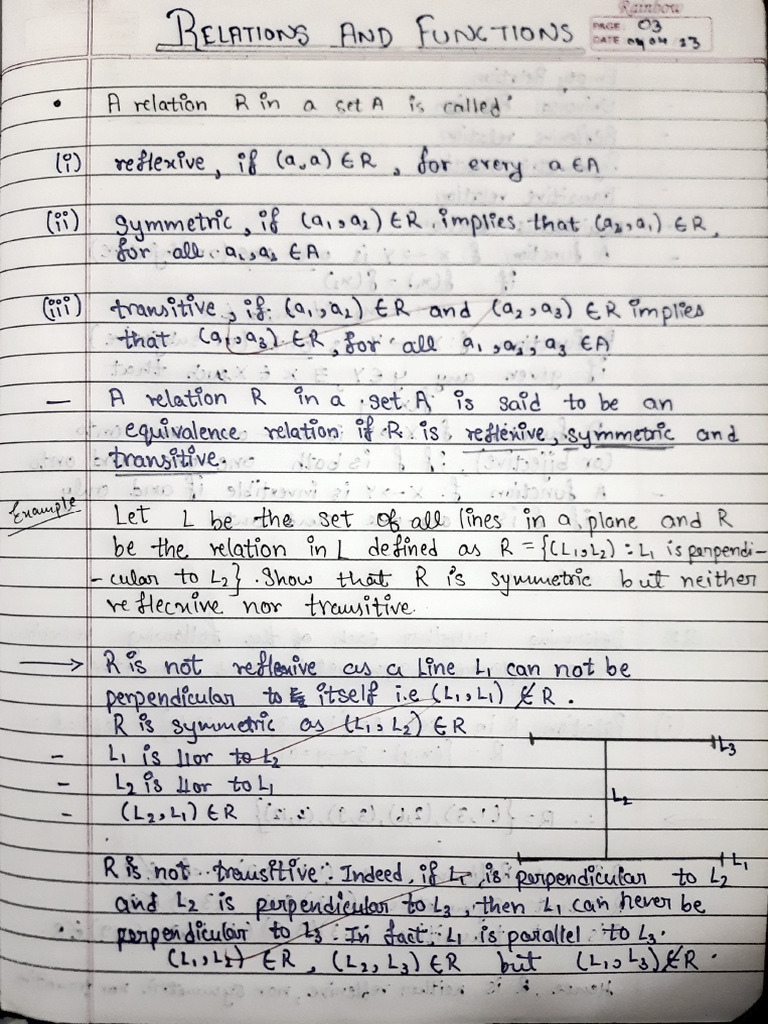 Rainbow
RELATIONS AND FUNCTIONS
PAGE: 03
DATE 04 04 23
• A relation R in a set A is called
(i) reflexive, if (a,a) ∈ R, for every a ∈ A.
(ii) symmetric, if (a₁,a₂) ∈ R implies that (a₂,a₁) ∈ R,
for all a₁,a₂ ∈ A
(iii) transitive, if (a₁,a₂) ∈ R and (a₂,a₃) ∈ R implies
that (a₁,a₃) ∈ R, for all a₁,a₂,a₃ ∈ A
— A relation R in a set A is said to be an
equivalence relation if R is reflexive, symmetric and
transitive.
Example Let L be the set of all lines in a plane and R
be the relation in L defined as R = {(L₁,L₂) : L₁ is perpendi-
-cular to L₂}. Show that R is symmetric but neither
reflecnive nor transitive.
→ R is not reflexive as a Line L₁ can not be
perpendicular to itself i.e (L₁,L₁) ∉ R.
R is symmetric as (L₁,L₂) ∈ R
- L₁ is ⊥or to L₂
- L₂ is ⊥or to L₁
- (L₂,L₁) ∈ R
L₃
L₂
L₁
R is not transitive. Indeed, if L₁ is perpendicular to L₂
and L₂ is perpendicular to L₃, then L₁ can never be
perpendicular to L₃. In fact, L₁ is parallel to L₃.
(L₁,L₂) ∈ R, (L₂,L₃) ∈ R but (L₁,L₃) ∉ R.